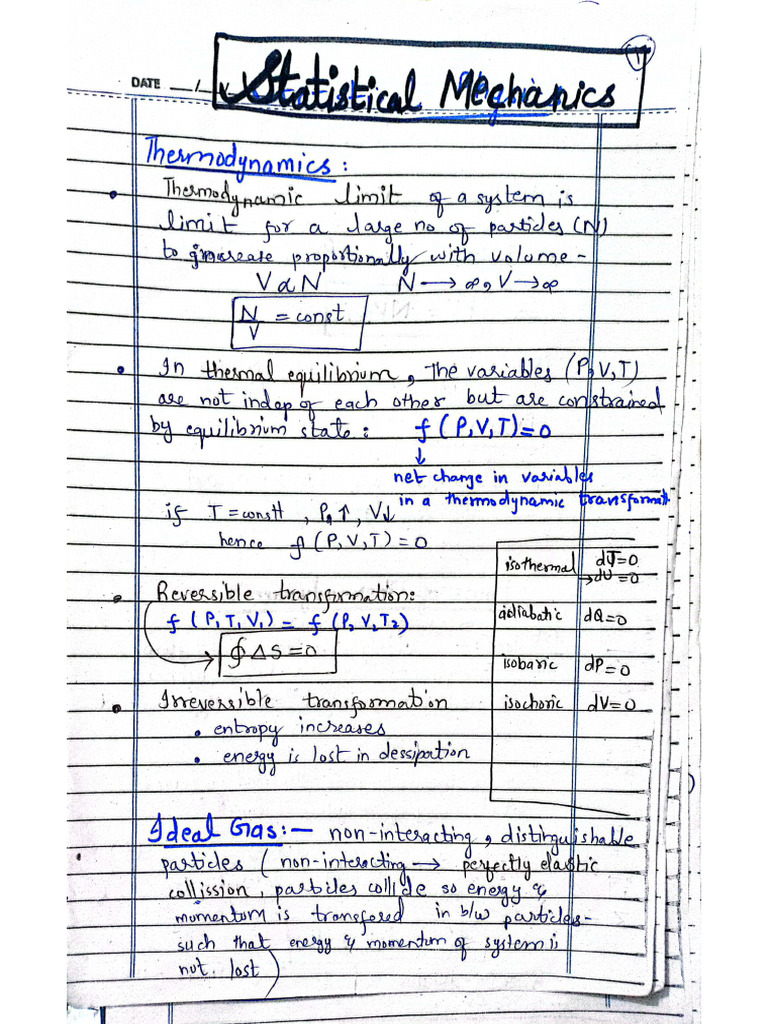 1
DATE __/
Statistical Mechanics
Thermodynamics :
• Thermodynamic limit of a system is
limit for a large no of particles (N)
to increase proportionally with volume -
V α N N → ∞, V → ∞
N/V = const
• In thermal equilibrium, the variables (P, V, T)
are not indep of each other but are constrained
by equilibrium state : f (P, V, T) = 0
↓
net change in variables
in a thermodynamic transformat
if T = constt , P ↑ , V↓
hence f (P, V, T) = 0
isothermal dT=0
→dU=0
adiabatic dQ=0
isobaric dP=0
isochoric dV=0
• Reversible transformation:
f (P, T, V₁) = f (P₂ V₂ T₂)
∮ ΔS = 0
• Irreversible transformation
• entropy increases
• energy is lost in dessipation
Ideal Gas :— non-interacting, distinguishable
particles ( non-interacting → perfectly elastic
collission, particles collide so energy &
momentum is transfered in b/w particles-
such that energy & momentum of system is
not. lost )